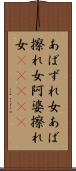 あばずれ女あば
擦れ女阿婆擦れ
女